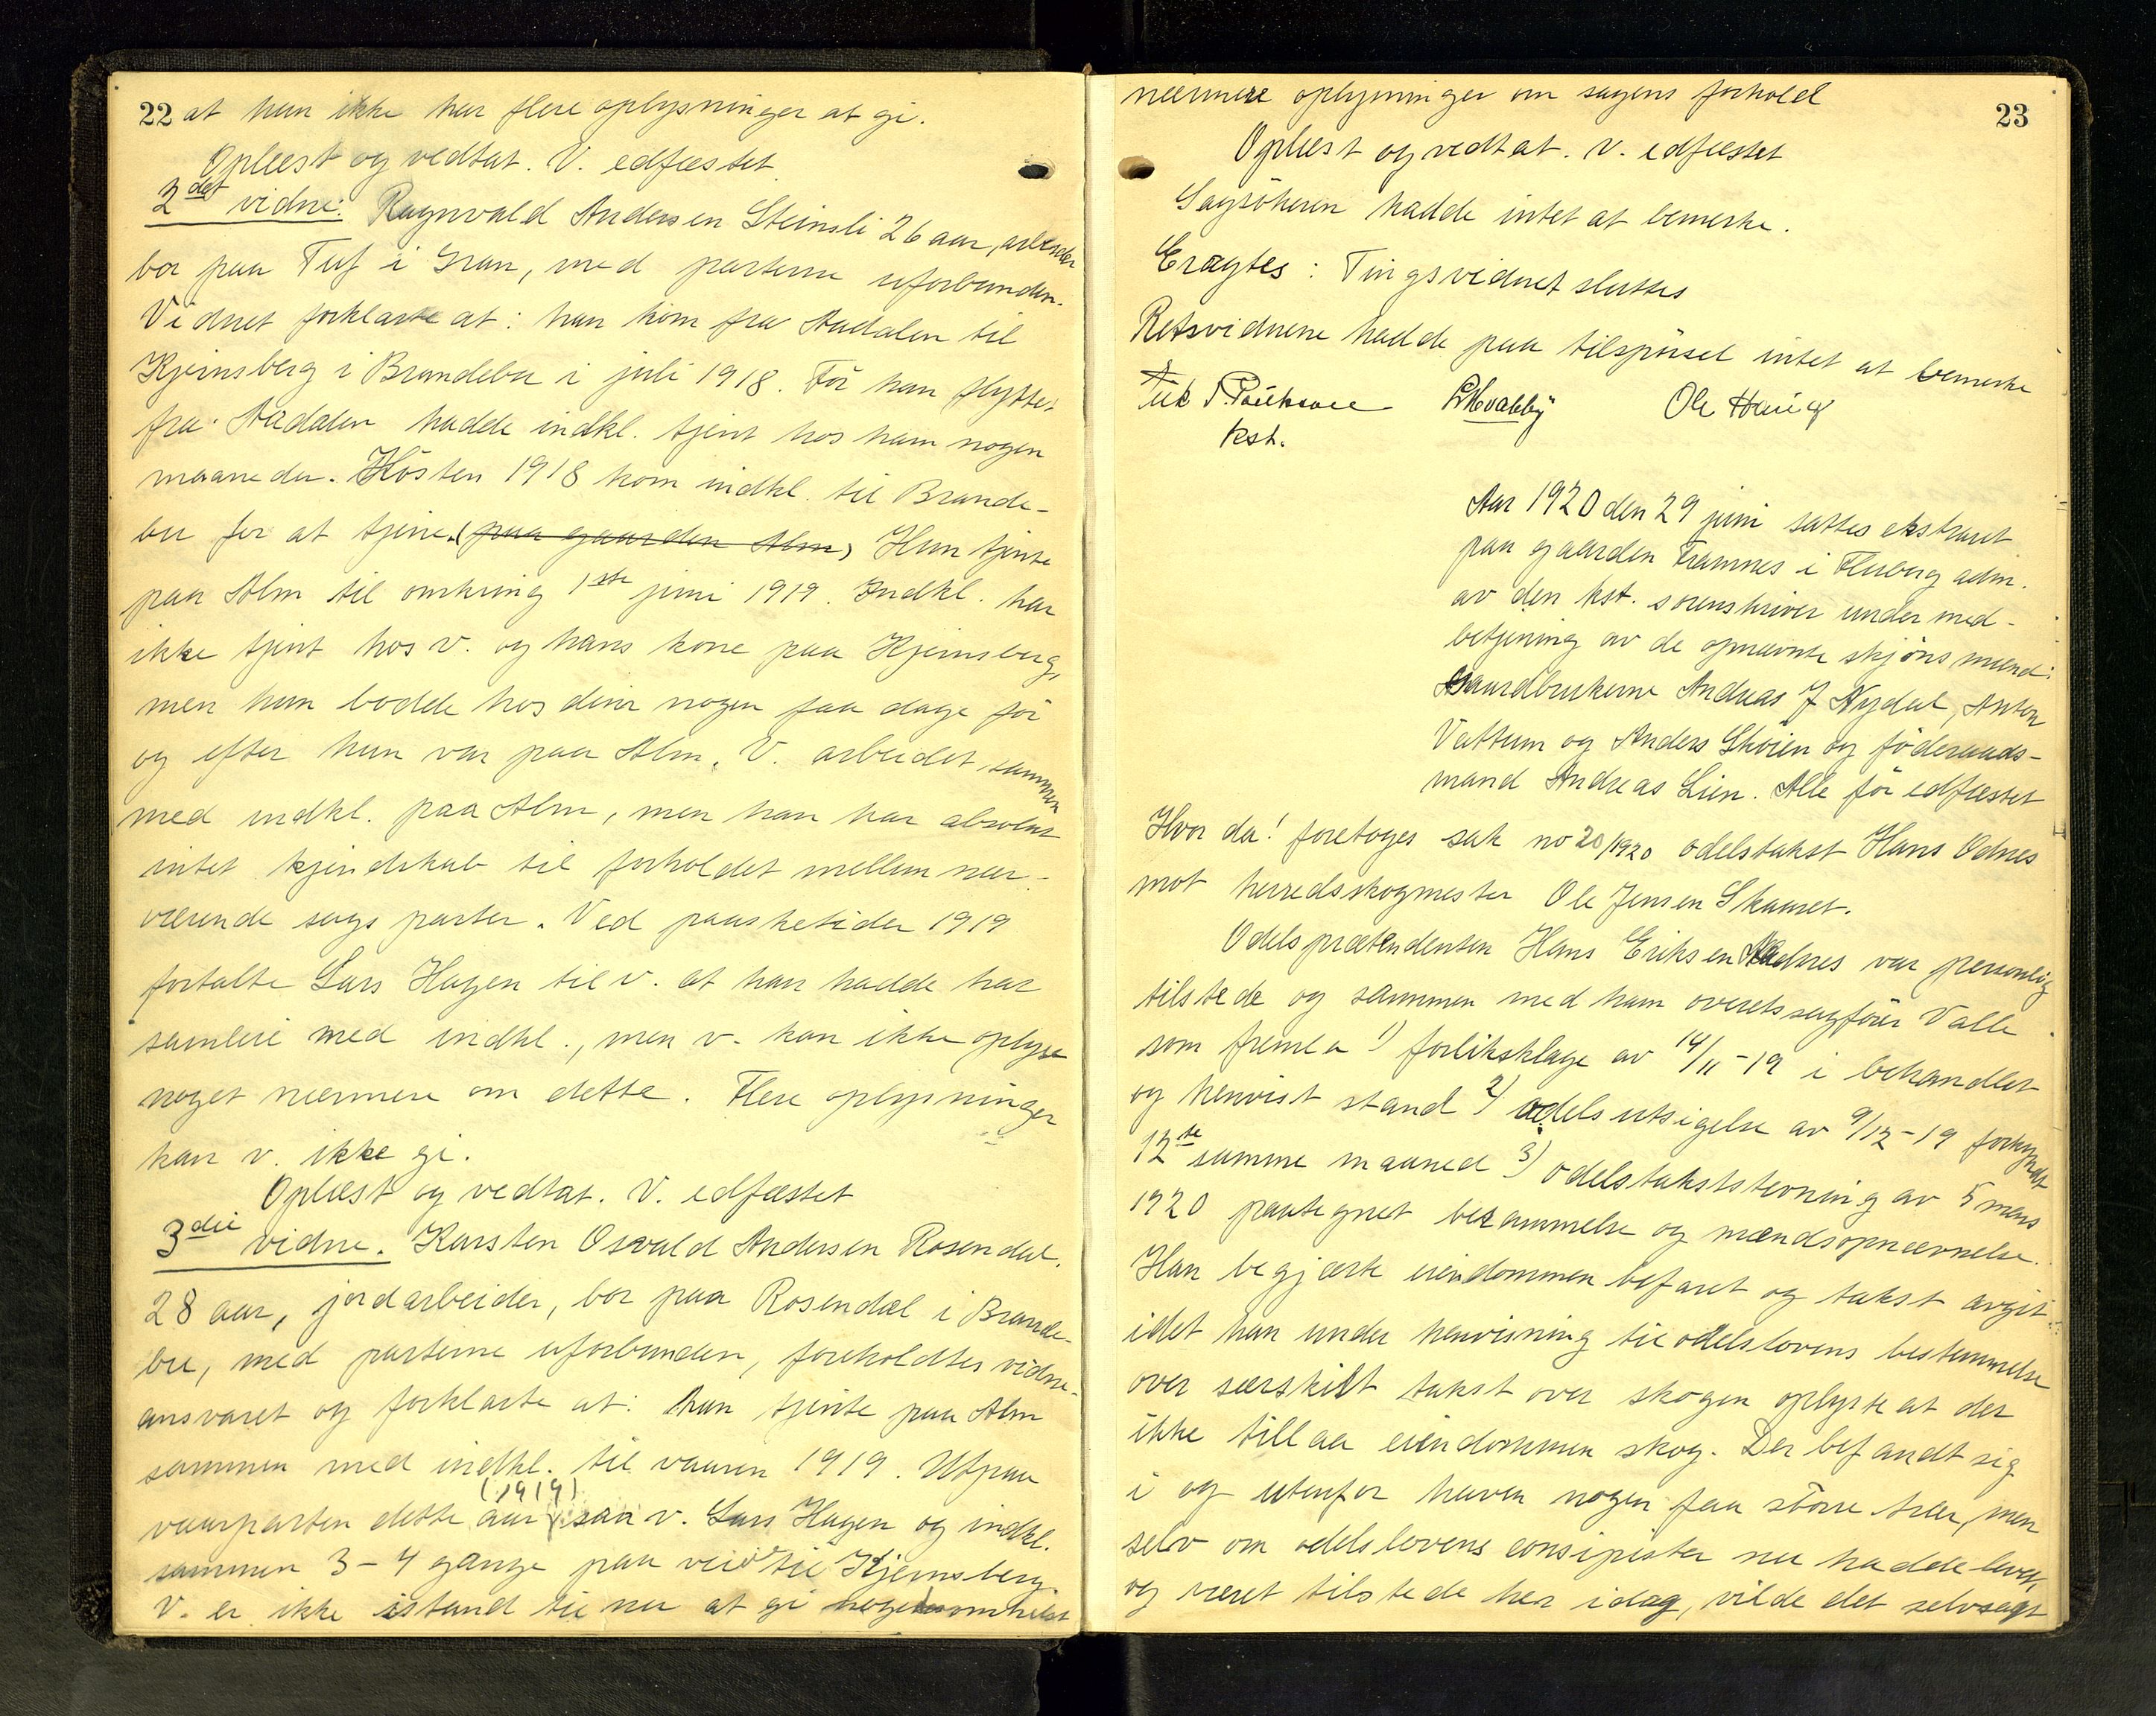 22 at hun ikke har flere oplysninger at gi.
Oplæst og vedtat. V. edfæstet
2det vidne: Ragnvald Andersen Steinsli 26 aar, arbeider
bor paa Tuf i Gran, med parterne uforbunden.
Vidnet forklarte at: han kom fra Aadalen til
Kjernsberg i Brandebu i juli 1918. Før han flyttet
fra Aadalen hadde indkl. tjent hos ham nogen
maaneder. Høsten 1918 kom indkl. til Brande-
bu for at tjene. (paa gaarden Alm) Hun tjente
paa Alm til omkring 1ste juni 1919. Indkl. har
ikke tjent hos v. og hans kone paa Kjernsberg,
men hun bodde hos dem nogen faa dage før
og efter hun var paa Alm. V. arbeidet sammen
med indkl. paa Alm, men han har absolut
intet kjendskab til forholdet mellem nær-
værende sags parter. Ved paasketider 1919
fortalte Lars Hagen til v. at han hadde hat
samleie med indkl., men v. kan ikke oplyse
noget nærmere om dette. Flere oplysninger
kan v. ikke gi.
Oplæst og vedtat. V. edfæstet
3die vidne. Karsten Osvald Andersen Rosendal.
28 aar, jordarbeider, bor paa Rosendal i Brande-
bu, med parterne uforbunden, foreholdtes vidne-
ansvaret og forklarte at: han tjente paa Alm
sammen med indkl. til vaaren 1919. Utpaa
(1919)
vaarparten dette aar saa v. Lars Hagen og indkl.
sammen 3-4 gange paa vei til Kjernsberg.
V. er ikke istand til nu at gi nogetsomhelst
23
nærmere oplysninger om sagens forhold
Oplæst og vedtat. V. edfæstet
Sagsøkeren hadde intet at bemerke.
Eragtes: Tingsvidnet sluttes
Retsvidnene hadde paa tilspørsel intet at bemerke
Ole
kst.
Aar 1920 den 29 juni sattes ekstraret
paa gaarden Framnes i Fluberg adm.
av den kst. sorenskriver under med-
betjening av de opnævnte skjønsmænd:
Gaardbrukerne Andreas J Nydal, Anton
Vattum og Anders Skøien og føderaads-
mand Andreas Lien. Alle før edfæstet
Hvor da! foretoges sak no 20/1920 odelstakst Hans Odnes
mot herredsskogmester Ole Jensen Skaaret.
Odelsprætendenten Hans Eriksen Odnes var personlig
tilstede og sammen med ham overetssagfører Valle
som fremla 1) forliksklage av 14/11-19 i behandlet
og henvist stand 2) odelsutsigelse av 9/12-19 forkyndt
12te samme maaned 3) odelstakststevning av 5 mars
1920 paategnet berammelse og mændsopnævnelse.
Han begjærte eiendommen befaret og takst avgit
idet han under henvisning til odelslovens bestemmelse
over særskilt takst over skogen oplyste at der
ikke tillaa eiendommen skog. Der befandt sig
i og utenfor haven nogen faa større trær, men
selv om odelslovens concipister nu hadde levet,
og været tilstede her idag, vilde det selvsagt